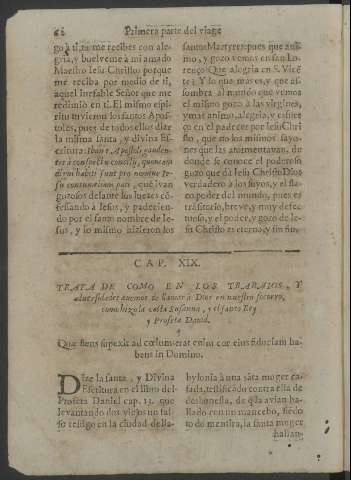 62 Primera parte del viage
go à ti, tu me recibes con ale-
gria, y buelveme à mi amado
Maestro Iesu Christo: porque
me reciba por medio de ti,
aquel inefable Señor que me
redimiò en ti. El mismo espi-
ritu tuvieron los santos Apos-
toles, pues de todos ellos dize
la misma santa, y divina Es-
critura: Ibant Apostoli gauden-
tes à conspectu concilij, quoniam
digni habiti sunt pro nomine Ie-
su contumeliam pati, que ivan
gozosos delante los juezes cō-
fessando à Iesus, y padecien-
do por el santo nombre de Ie-
sus, y lo mismo hizieron los
santos Martyres: pues que ani-
mo, y gozo vemos en san Lo-
renço? Que alegria en S. Vicē-
te? Y lo que mas es, y que as-
sombra al mundo que vemos
el mismo gozo à las virgines,
y mas animo, alegria, y esfuer-
ço en el padecer por Iesu Chri
sto, que no los mismos sayo-
nes que las atormentavan, de
donde se conoce el poderoso
gozo que dà Iesu Christo Dios
verdadero à los suyos, y el fla-
co poder del mundo, pues es
trāsitorio, breve, y muy defec-
tuoso, y el poder, y gozo de Ie-
su Christo es eterno, y sin fin.
CAP. XIX.
TRATA DE COMO EN LOS TRABAIOS, Y
adversidades avemos de llamar à Dios en nuestro socorro,
como hizo la casta Susanna, y el santo Rey
y Profeta David.
Quæ flens suspexit ad cœlum: erat enim cor eius fiduciam ha-
bens in Domino.
Dize la santa, y Divina
Escritura en el libro del
Profeta Daniel cap. 13. que
levantando dos viejos un fal-
so testigo en la ciudad de Ba-
bylonia à una sāta muger ca-
sada, testificando contra ella de
deshonesta, de q̃ la avian ha-
llado con un mancebo, siēdo
todo mentira, la santa muger
hallan-